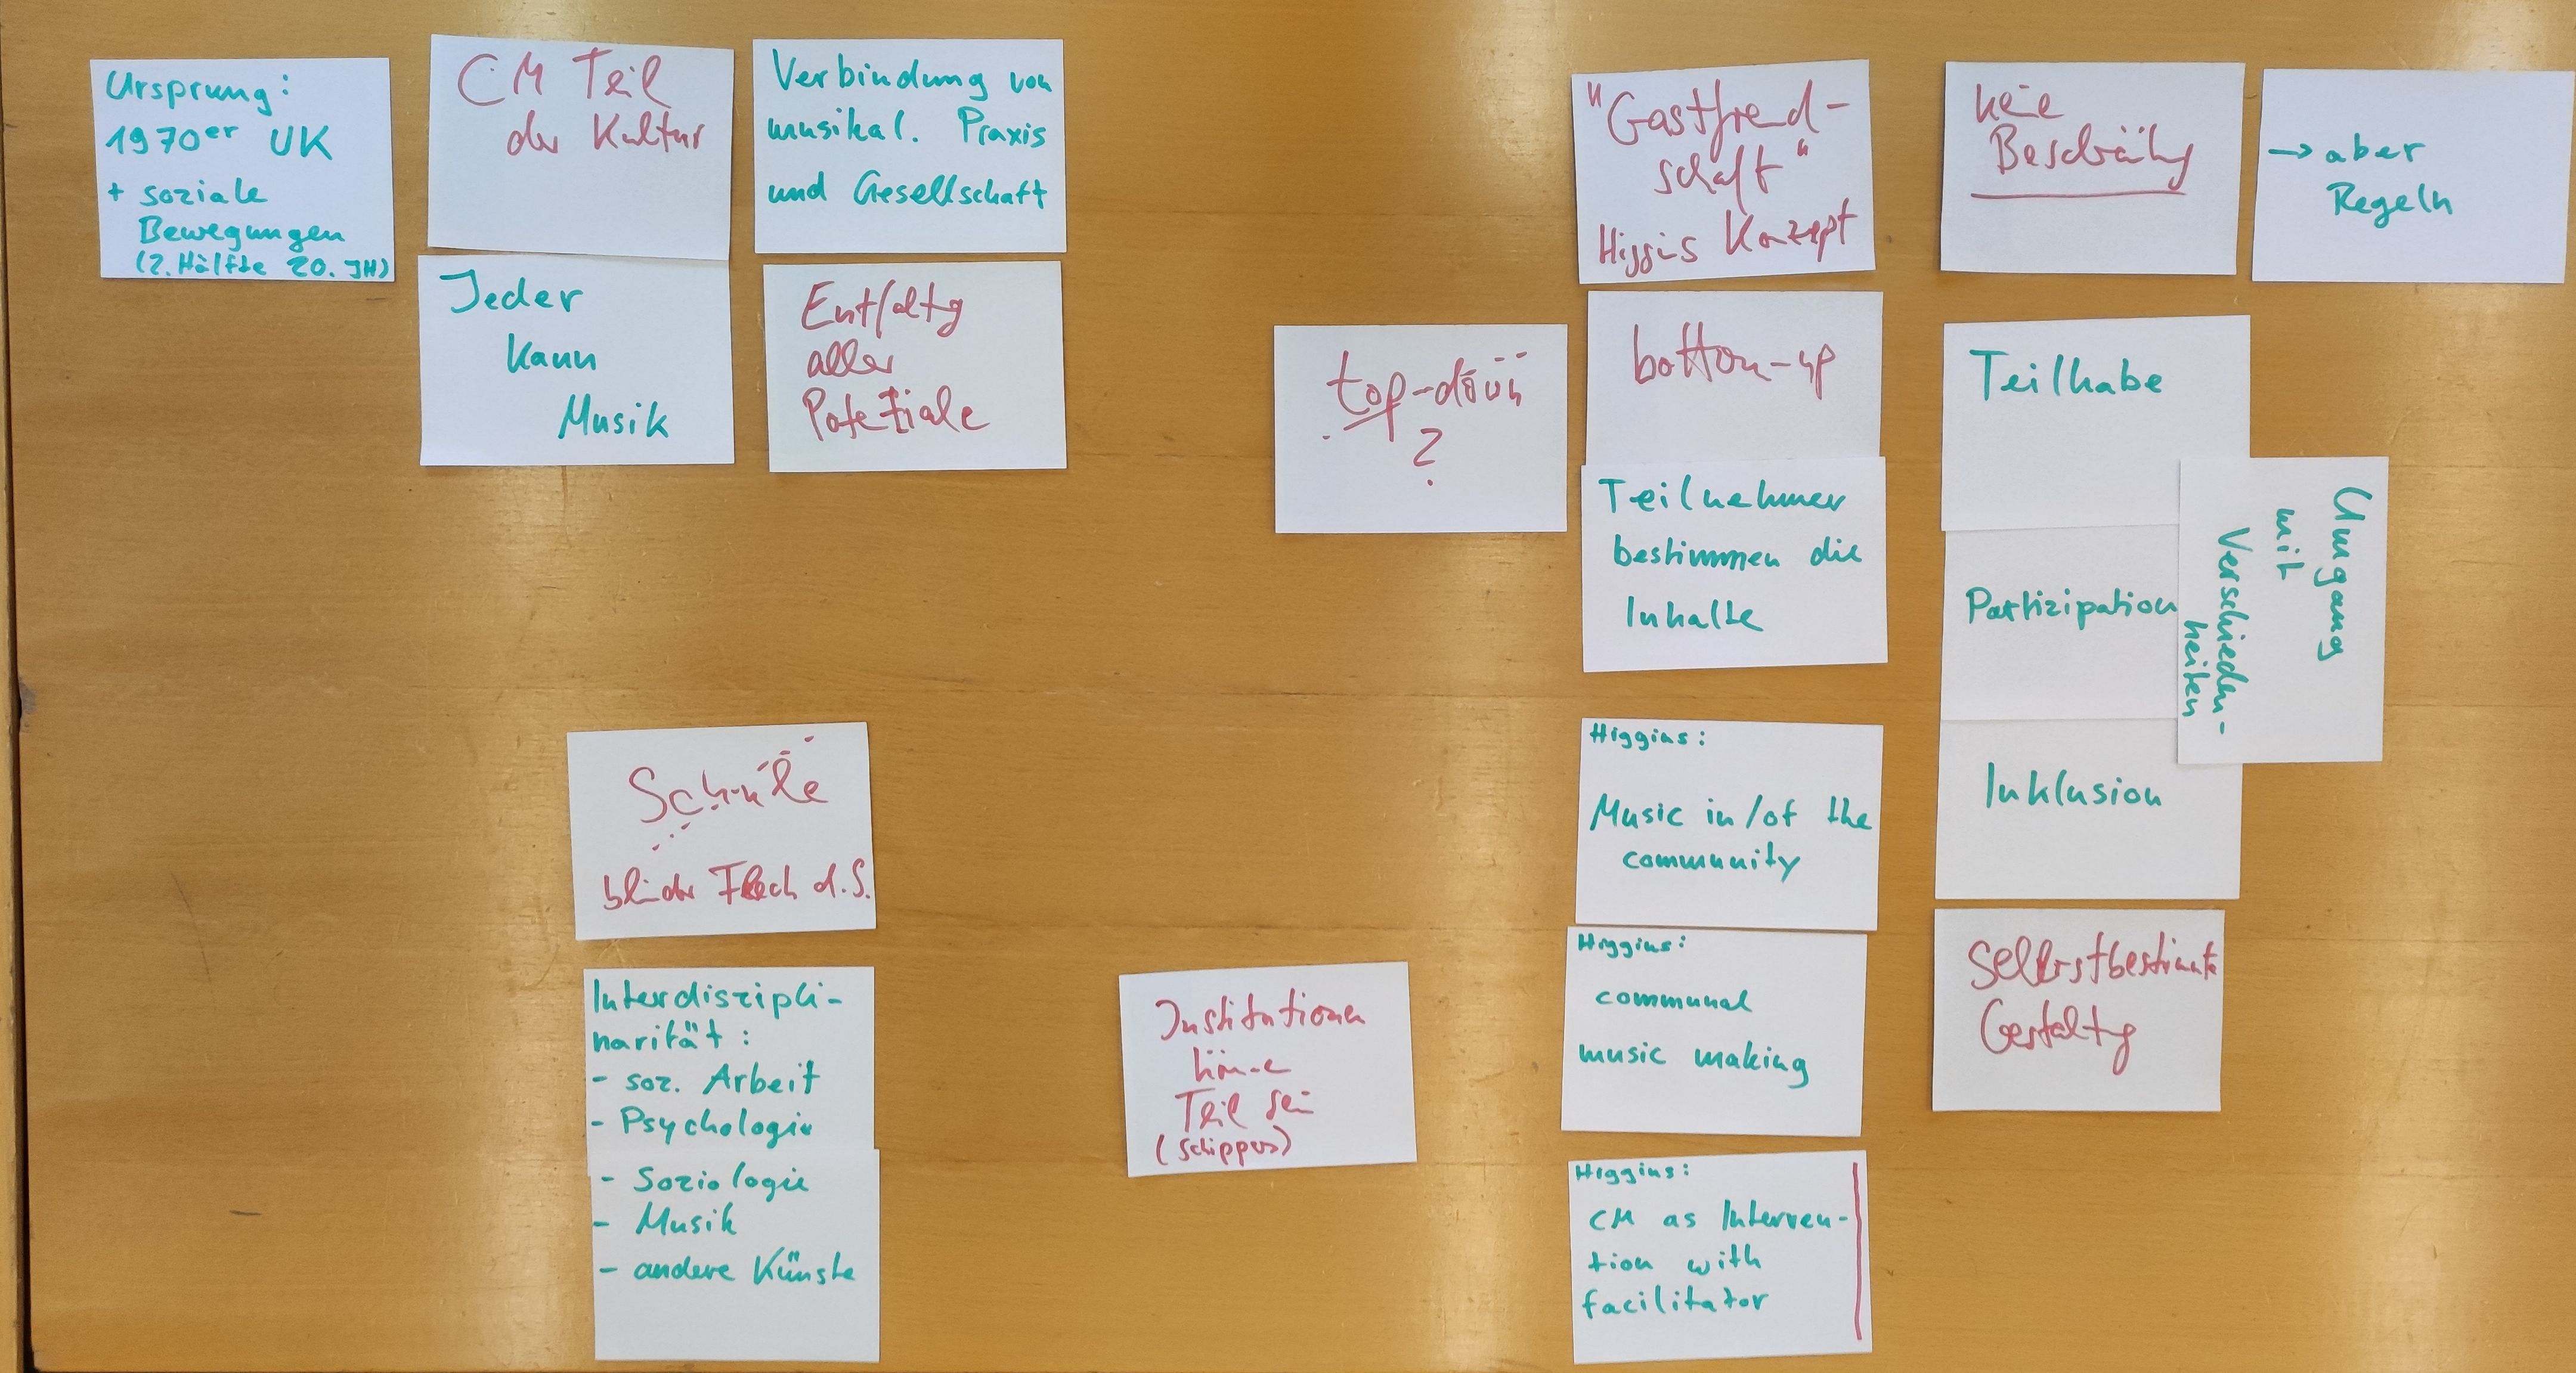 Ursprung:
1970er UK
+ soziale
Bewegungen
(2. Hälfte 20. JH)
CM Teil
der Kultur
Verbindung von
musikal. Praxis
und Gesellschaft
Jeder
kann
Musik
Entfaltg
aller
Potenziale
top-down
?
"Gastfreund-
schaft"
Higgins Konzept
keine
Beschränkg
→ aber
Regeln
bottom-up
Teilnehmer
bestimmen die
Inhalte
Teilhabe
Partizipation
Inklusion
Umgang
mit
Verschieden-
heiten
Schule
blinder Fleck d. S.
Interdiszipli-
narität:
- soz. Arbeit
- Psychologie
- Soziologie
- Musik
- andere Künste
Institutionen
können
Teil sein
(Schippers)
Higgins:
Music in/of the
community
Higgins:
communal
music making
Higgins:
CM as Interven-
tion with
facilitator
Selbstbestimmte
Gestaltg